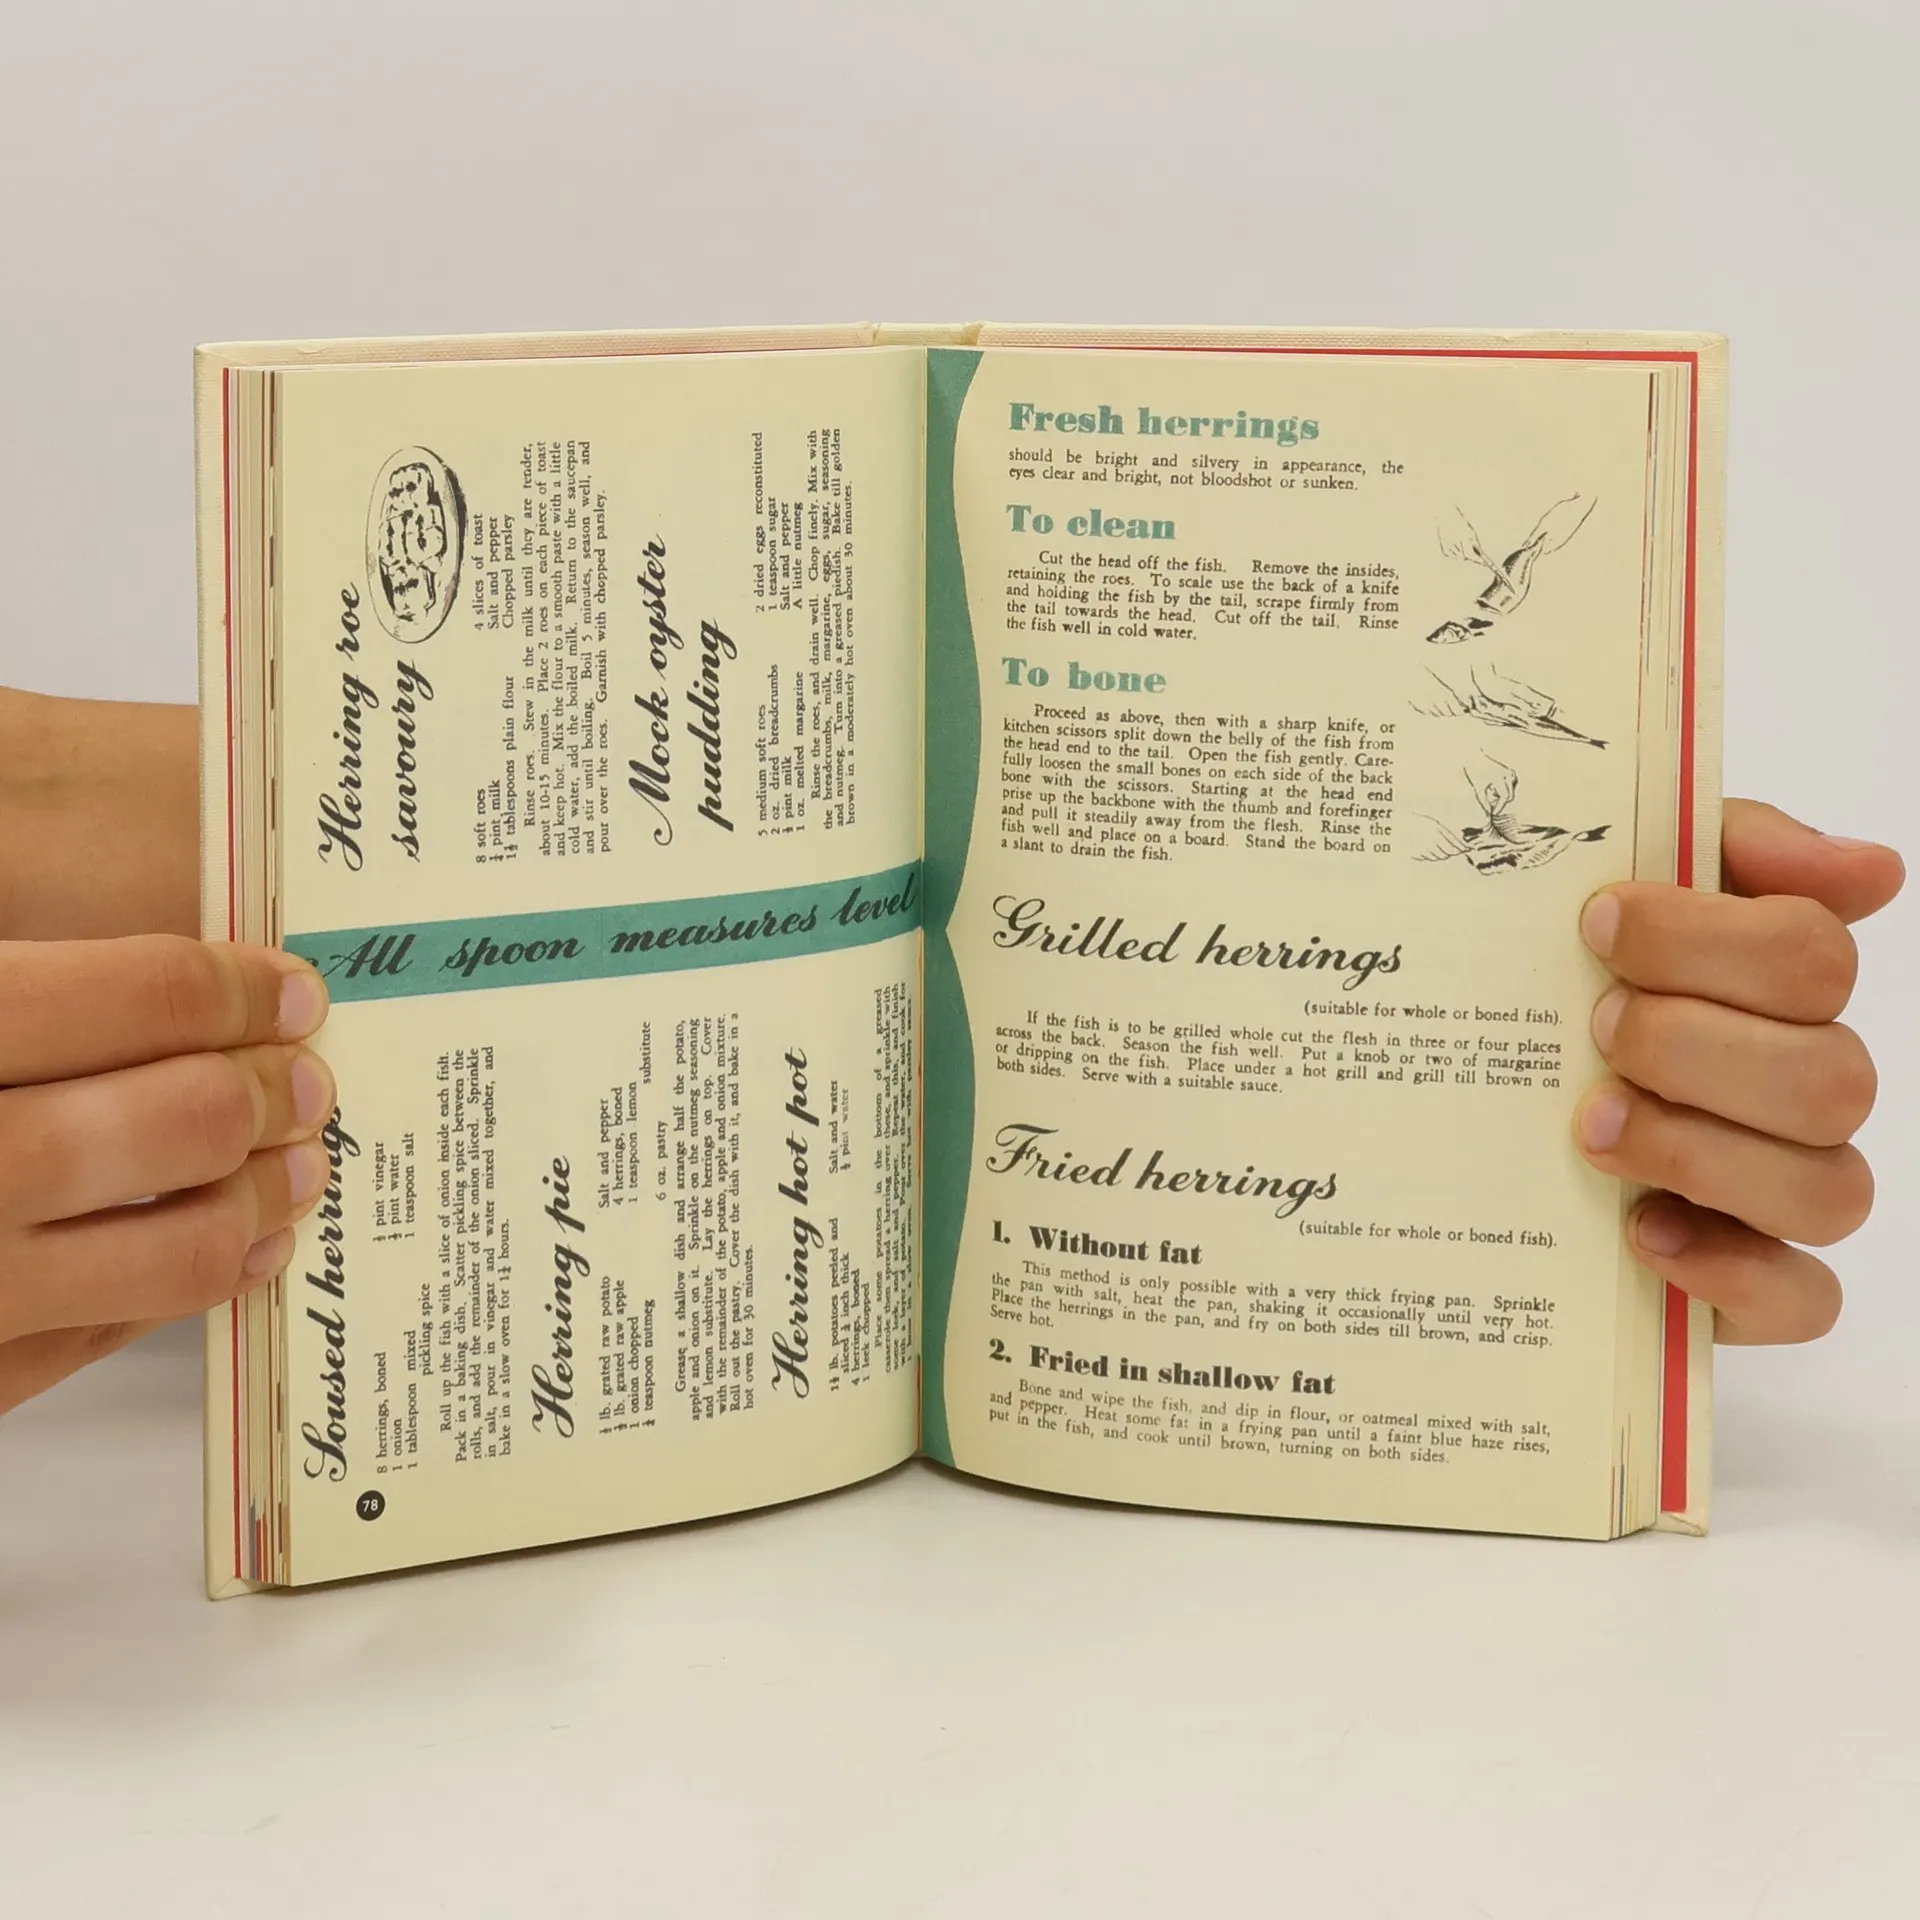 78
Soused herrings
8 herrings, boned
1 onion
1 tablespoon mixed
pickling spice
pint vinegar
pint water
1 teaspoon salt
Roll up the fish with a slice of onion inside each fish.
Pack in a baking dish. Scatter pickling spice between the
rolls, and add the remainder of the onion sliced. Sprinkle
in salt, pour in vinegar and water mixed together, and
bake in a slow oven for 1½ hours.
Herring pie
lb. grated raw potato
½ lb. grated raw apple
1 onion chopped
teaspoon nutmeg
Salt and pepper
4 herrings, boned
1 teaspoon lemon
substitute
6 oz. pastry
Grease a shallow dish and arrange half the potato,
apple and onion on it. Sprinkle on the nutmeg seasoning
and lemon substitute. Lay the herrings on top. Cover
with the remainder of the potato, apple and onion mixture.
Roll out the pastry. Cover the dish with it, and bake in a
hot oven for 30 minutes.
Herring hot pot
1½ lb. potatoes peeled and
sliced ¼ inch thick
4 herrings, boned
1 leek chopped
Salt and water
pint water
Place some potatoes in the bottom of a greased
casserole then spread a herring over these, and sprinkle with
some leek, and salt and pepper. Repeat this, and finish
with a layer of potato. Pour over the water, and cook for
1 hour in a slow oven. Serve hot with parsley sauce.
All spoon measures level
Herring roe
savoury
8 soft roes
pint milk
1½ tablespoons plain flour
4 slices of toast
Salt and pepper
Chopped parsley
Rinse roes. Stew in the milk until they are tender,
about 10-15 minutes. Place 2 roes on each piece of toast
and keep hot. Mix the flour to a smooth paste with a little
cold water, add the boiled milk. Return to the saucepan
and stir until boiling. Boil 5 minutes, season well, and
pour over the roes. Garnish with chopped parsley.
Mock oyster
pudding
5 medium soft roes
2 oz. dried breadcrumbs
pint milk
1 oz. melted margarine
2 dried eggs reconstituted
1 teaspoon sugar
Salt and pepper
A little nutmeg
Rinse the roes, and drain well. Chop finely. Mix with
the breadcrumbs, milk, margarine, eggs, sugar, seasoning
and nutmeg. Turn into a greased piedish. Bake till golden
brown in a moderately hot oven about 30 minutes.
Fresh herrings
should be bright and silvery in appearance, the
eyes clear and bright, not bloodshot or sunken.
To clean
Cut the head off the fish. Remove the insides,
retaining the roes. To scale use the back of a knife
and holding the fish by the tail, scrape firmly from
the tail towards the head. Cut off the tail. Rinse
the fish well in cold water.
To bone
Proceed as above, then with a sharp knife, or
kitchen scissors split down the belly of the fish from
the head end to the tail. Open the fish gently. Care-
fully loosen the small bones on each side of the back
bone with the scissors. Starting at the head end
prise up the backbone with the thumb and forefinger
and pull it steadily away from the flesh. Rinse the
fish well and place on a board. Stand the board on
a slant to drain the fish.
Grilled herrings
(suitable for whole or boned fish).
If the fish is to be grilled whole cut the flesh in three or four places
across the back. Season the fish well. Put a knob or two of margarine
or dripping on the fish. Place under a hot grill and grill till brown on
both sides. Serve with a suitable sauce.
Fried herrings
(suitable for whole or boned fish).
1. Without fat
This method is only possible with a very thick frying pan. Sprinkle
the pan with salt, heat the pan, shaking it occasionally until very hot.
Place the herrings in the pan, and fry on both sides till brown, and crisp.
Serve hot.
2. Fried in shallow fat
Bone and wipe the fish, and dip in flour, or oatmeal mixed with salt,
and pepper. Heat some fat in a frying pan until a faint blue haze rises,
put in the fish, and cook until brown, turning on both sides.